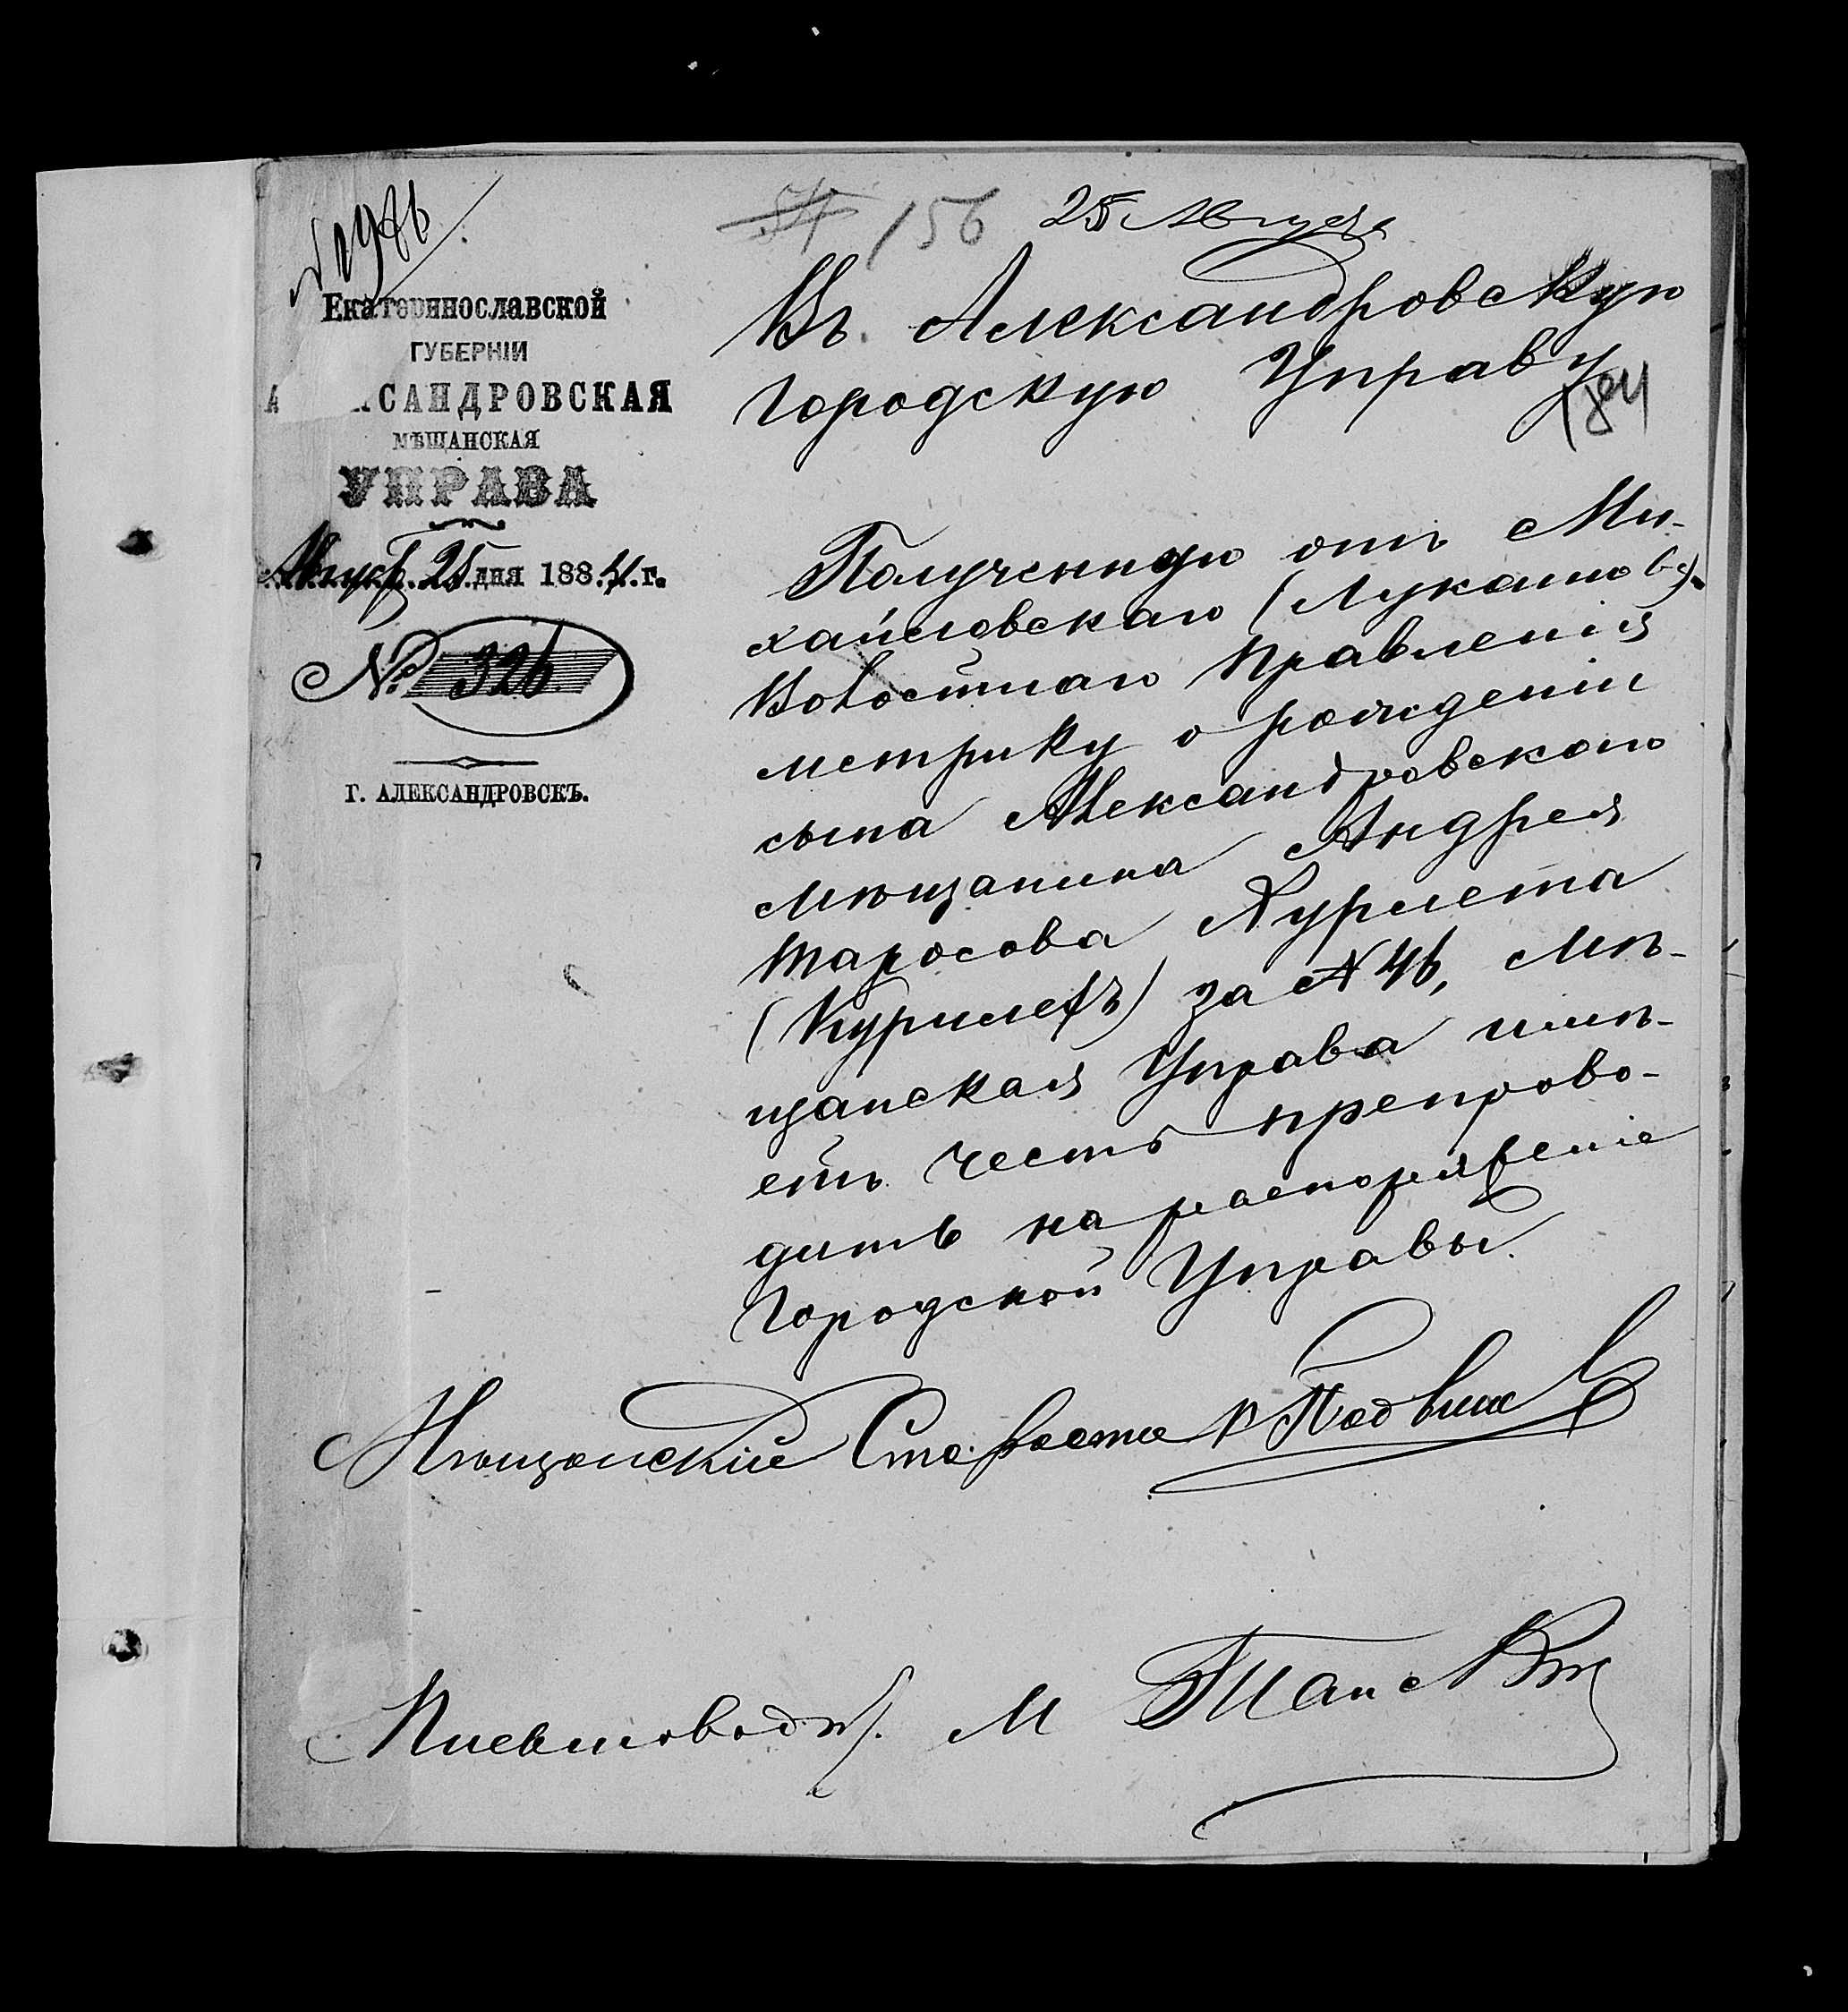 156 25 Августа
Екатеринославской
ГУБЕРНІИ
САНДРОВСКАЯ
МѢЩАНСКАЯ
УПРАВА
Август 25 дня 1884 г.
№ 326
Г. АЛЕКСАНДРОВСКЪ.
Въ Александровскую
Городскую Управу
184
Полученную отъ Ми-
хайловскаго (Лукашово)
Волостнаго Правленія
метрику о рожденіи
сына Александровскаго
мѣщанина Андрея
Таросова Курмета
(Курилетъ) за № 46, Мѣ-
щанская Управа имѣ-
етъ честь препрово-
дить на распоряженіе
Городской Управы.
Мѣщанскій Староста
Письмоводит. М